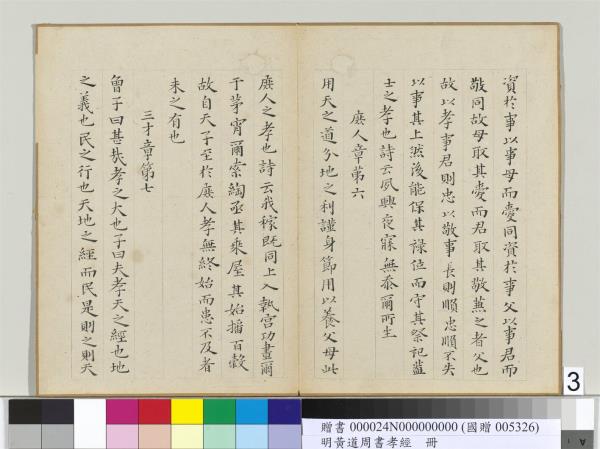 資於事以事母而愛同資於事父以事君而
敬同故母取其愛而君取其敬兼之者父也
故以孝事君則忠以敬事長則順忠順不失
以事其上然後能保其祿位而守其祭祀蓋
士之孝也詩云夙興夜寐無忝爾所生
庶人章第六
用天之道分地之利謹身節用以養父母此
庶人之孝也詩云我稼既同上入執宮功晝爾
于茅宵爾索綯亟其乘屋其始播百穀
故自天子至於庶人孝無終始而患不及者
未之有也
三才章第七
曾子曰甚哉孝之大也子曰夫孝天之經也地
之義也民之行也天地之經而民是則之則天
3
贈書 000024N000000000 (國贈 005326)
明黃道周書孝經 冊
A